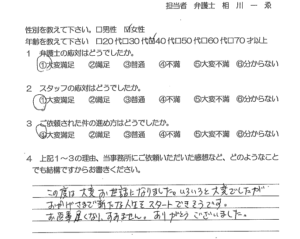 担当者　弁護士　相川 一 ゑ
性別を教えて下さい。□男性　☑女性
年齢を教えて下さい　□20代□30代☑40代□50代□60代□70才以上
1　弁護士の応対はどうでしたか。
①大変満足　②満足　③普通　④不満　⑤大変不満　⑥分からない
2　スタッフの応対はどうでしたか。
①大変満足　②満足　③普通　④不満　⑤大変不満　⑥分からない
3　ご依頼された件の進め方はどうでしたか。
①大変満足　②満足　③普通　④不満　⑤大変不満　⑥分からない
4　上記1～3の理由、当事務所にご依頼いただいた感想など、どのようなこと
でも結構ですからお書きください。
この度は大変お世話になりました。いろいろと大変でしたが
おかげさまで新たな人生をスタートできそうです。
お返事遅くなり、すみません。ありがとうございました。